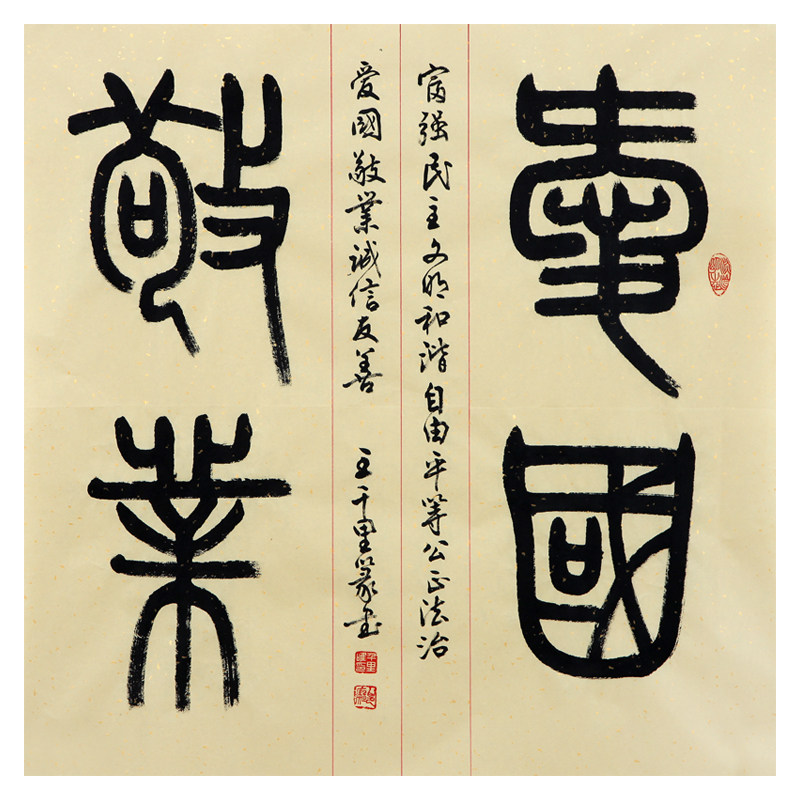 愛國
富强民主文明和谐自由平等公正法治
爱國敬業诚信友善 王千里篆書
敬業